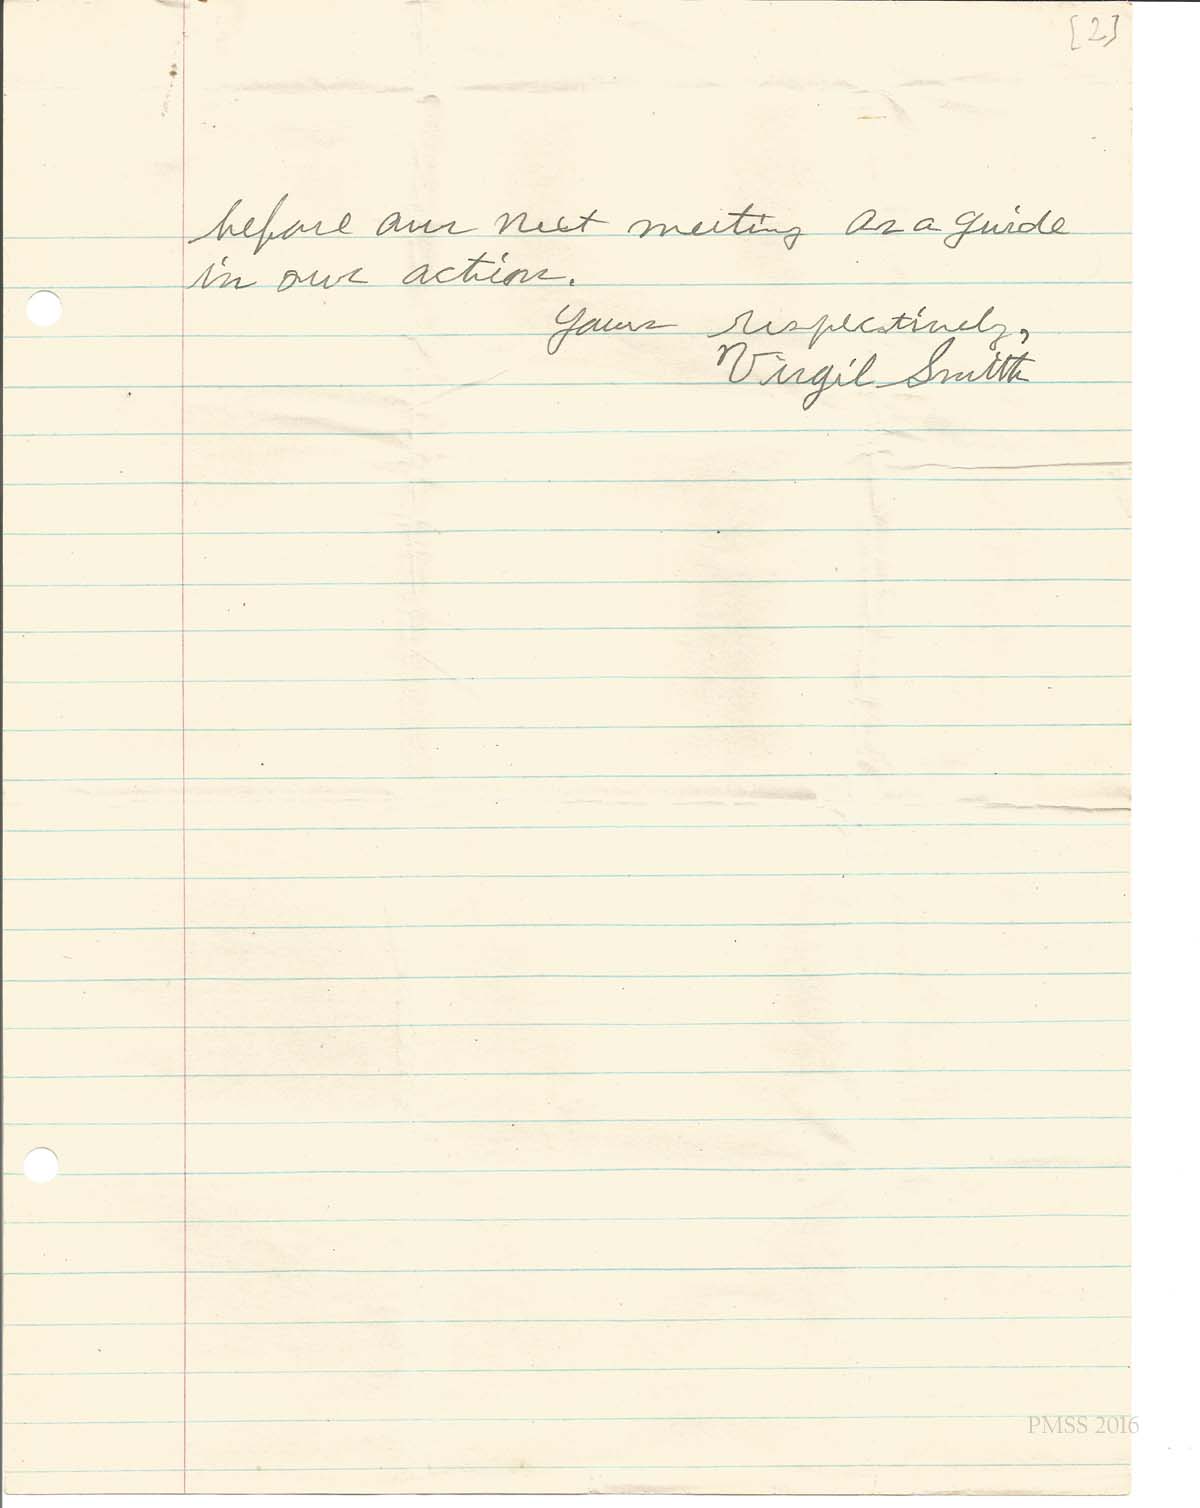 [2]
before our next meeting as a guide
in our action.
Yours respectively,
Virgil Smith
PMSS 2016